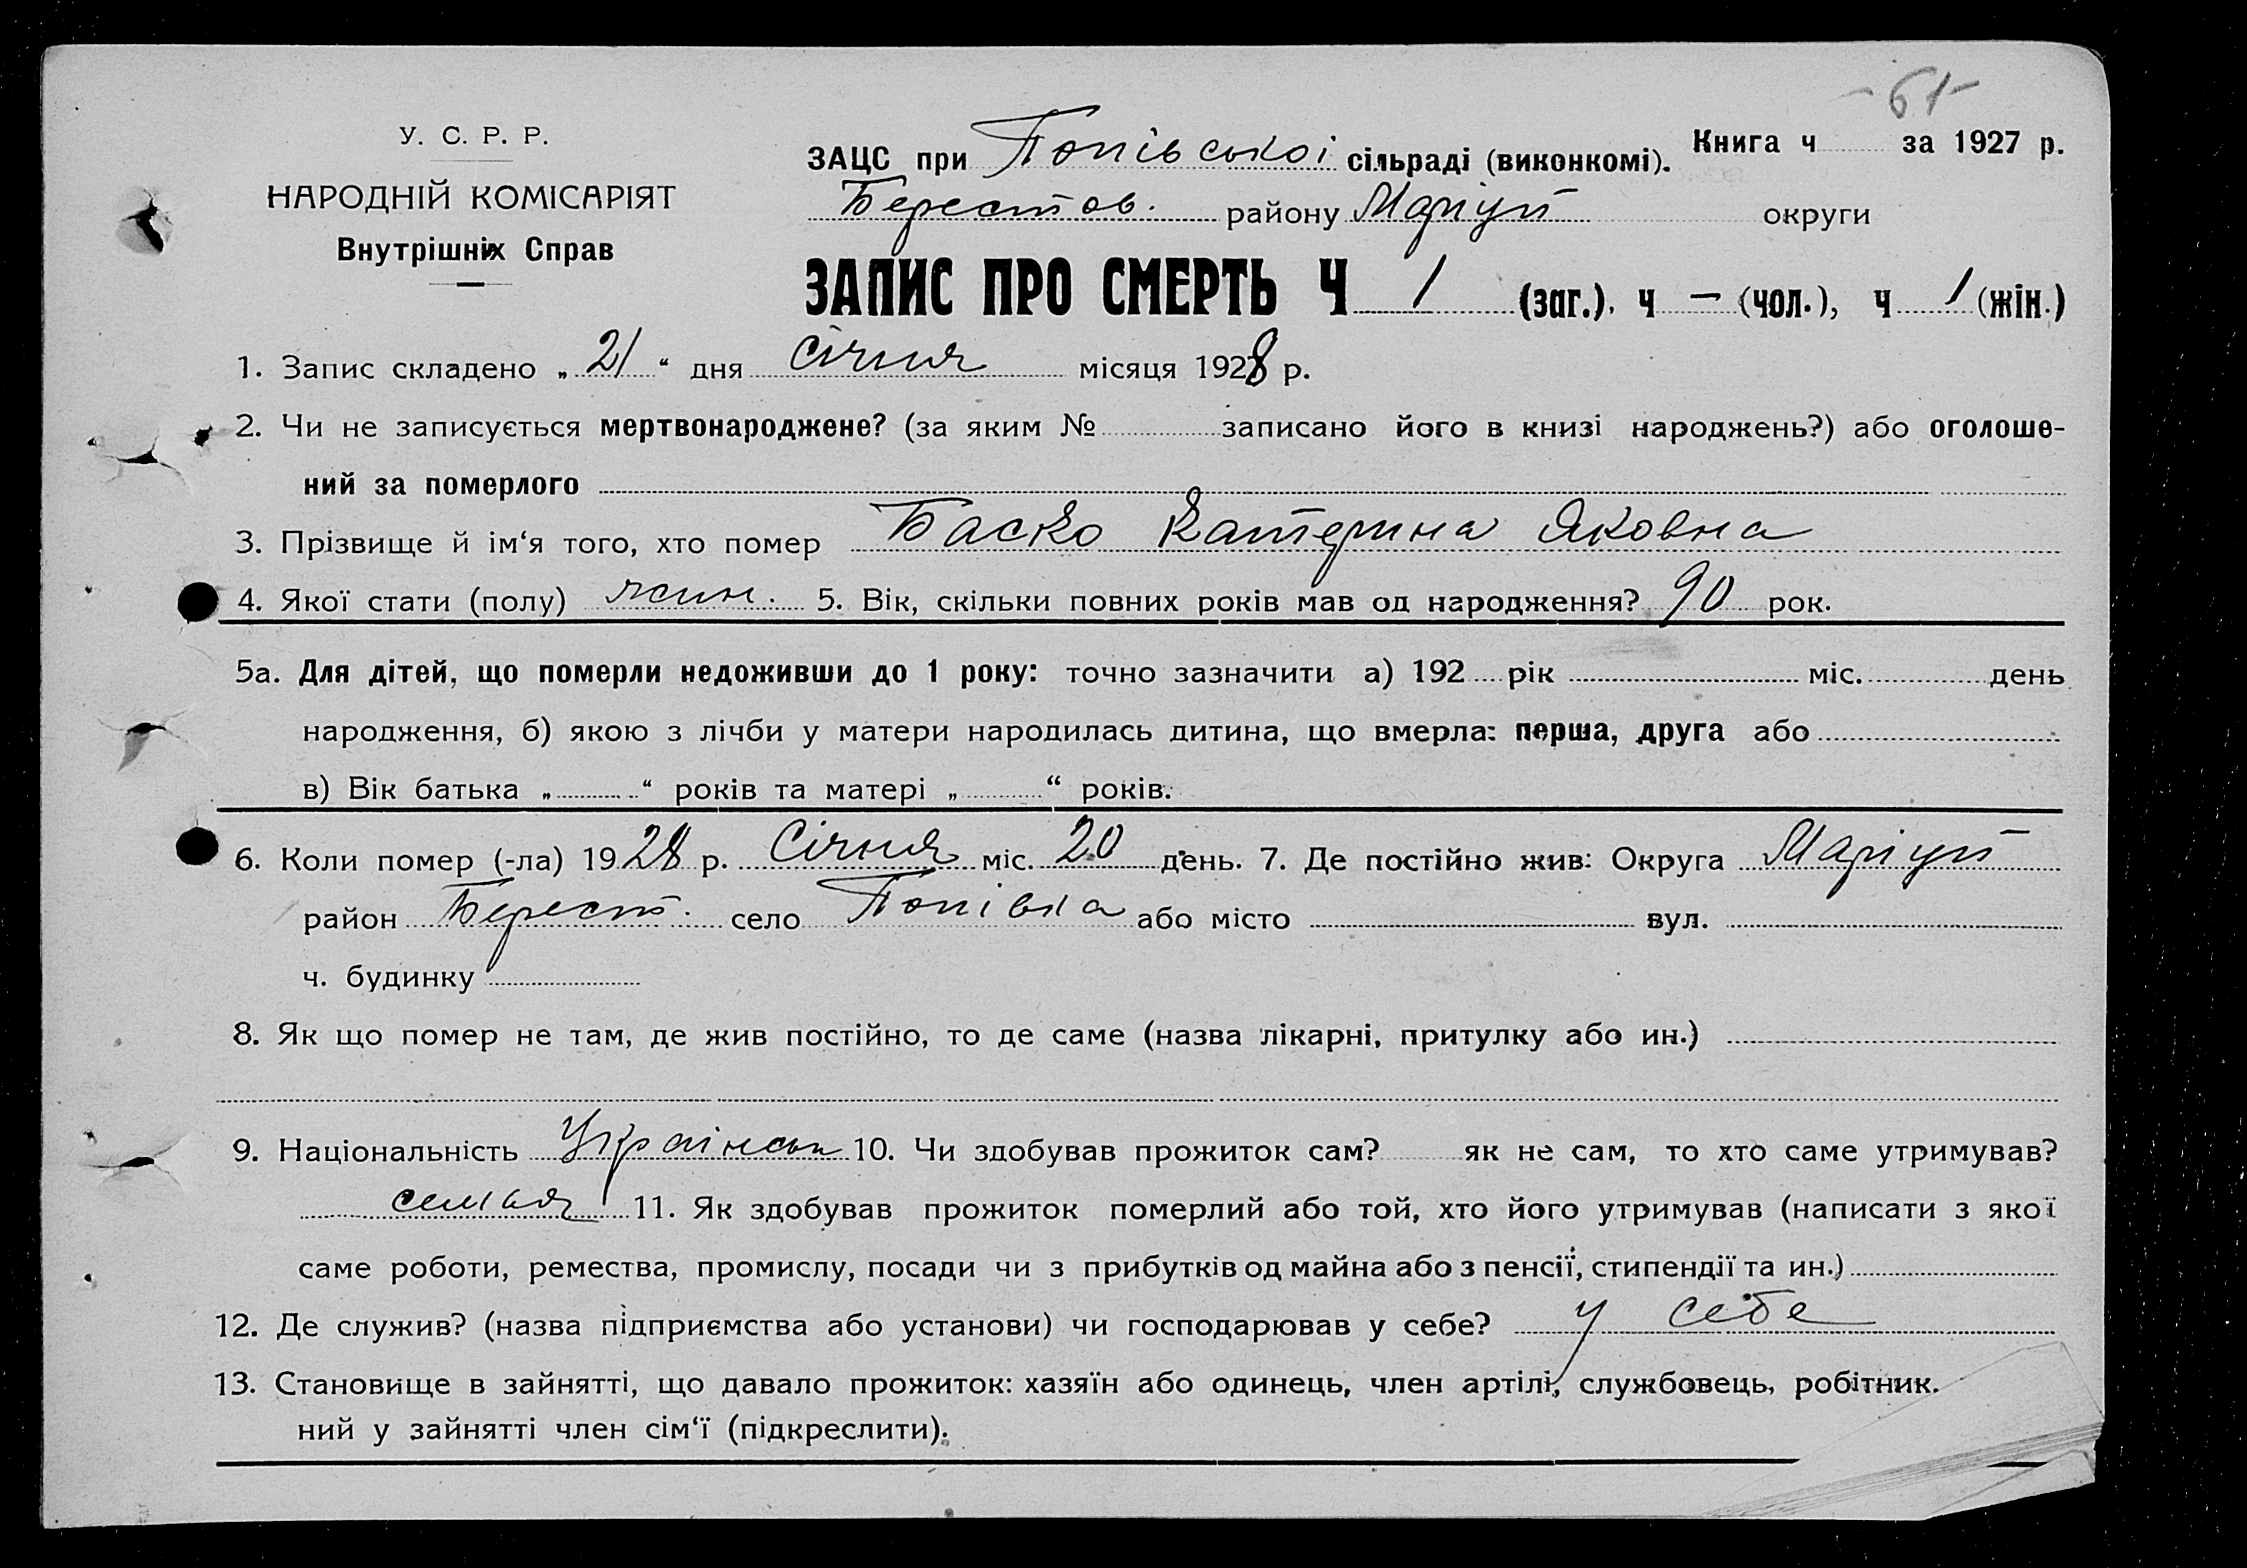 -61-
У. С. Р. Р.
НАРОДНІЙ КОМІСАРІЯТ
Внутрішніх Справ
ЗАЦС при Попівської сільраді (виконкомі). Книга ч за 1927 р.
Берестов. району Маріуп округи
ЗАПИС ПРО СМЕРТЬ Ч 1 (заг.), ч — (чол.), ч 1 (жін.)
1. Запис складено „ 21 “ дня Січня місяця 1928 р.
2. Чи не записується мертвонароджене? (за яким № записано його в книзі народжень?) або оголоше-
ний за померлого
3. Прізвище й ім‘я того, хто помер Баско Катерина Яковна
4. Якої стати (полу) жин. 5. Вік, скільки повних років мав од народження? 90 рок.
5а. Для дітей, що померли недоживши до 1 року: точно зазначити а) 192 рік міс. день
народження, б) якою з лічби у матери народилась дитина, що вмерла: перша, друга або
в) Вік батька „ “ років та матері „ “ років.
6. Коли помер (-ла) 1928 р. Січня міс. 20 день. 7. Де постійно жив: Округа Маріуп
район Берест. село Попівка або місто вул.
ч. будинку
8. Як що помер не там, де жив постійно, то де саме (назва лікарні, притулку або ин.)
9. Національність Українськ 10. Чи здобував прожиток сам? як не сам, то хто саме утримував?
семья 11. Як здобував прожиток померлий або той, хто його утримував (написати з якої
саме роботи, ремества, промислу, посади чи з прибутків од майна або з пенсії, стипендії та ин.)
12. Де служив? (назва підприємства або установи) чи господарював у себе? у себе
13. Становище в зайнятті, що давало прожиток: хазяїн або одинець, член артілі, службовець, робітник.
ний у зайнятті член сім‘ї (підкреслити).